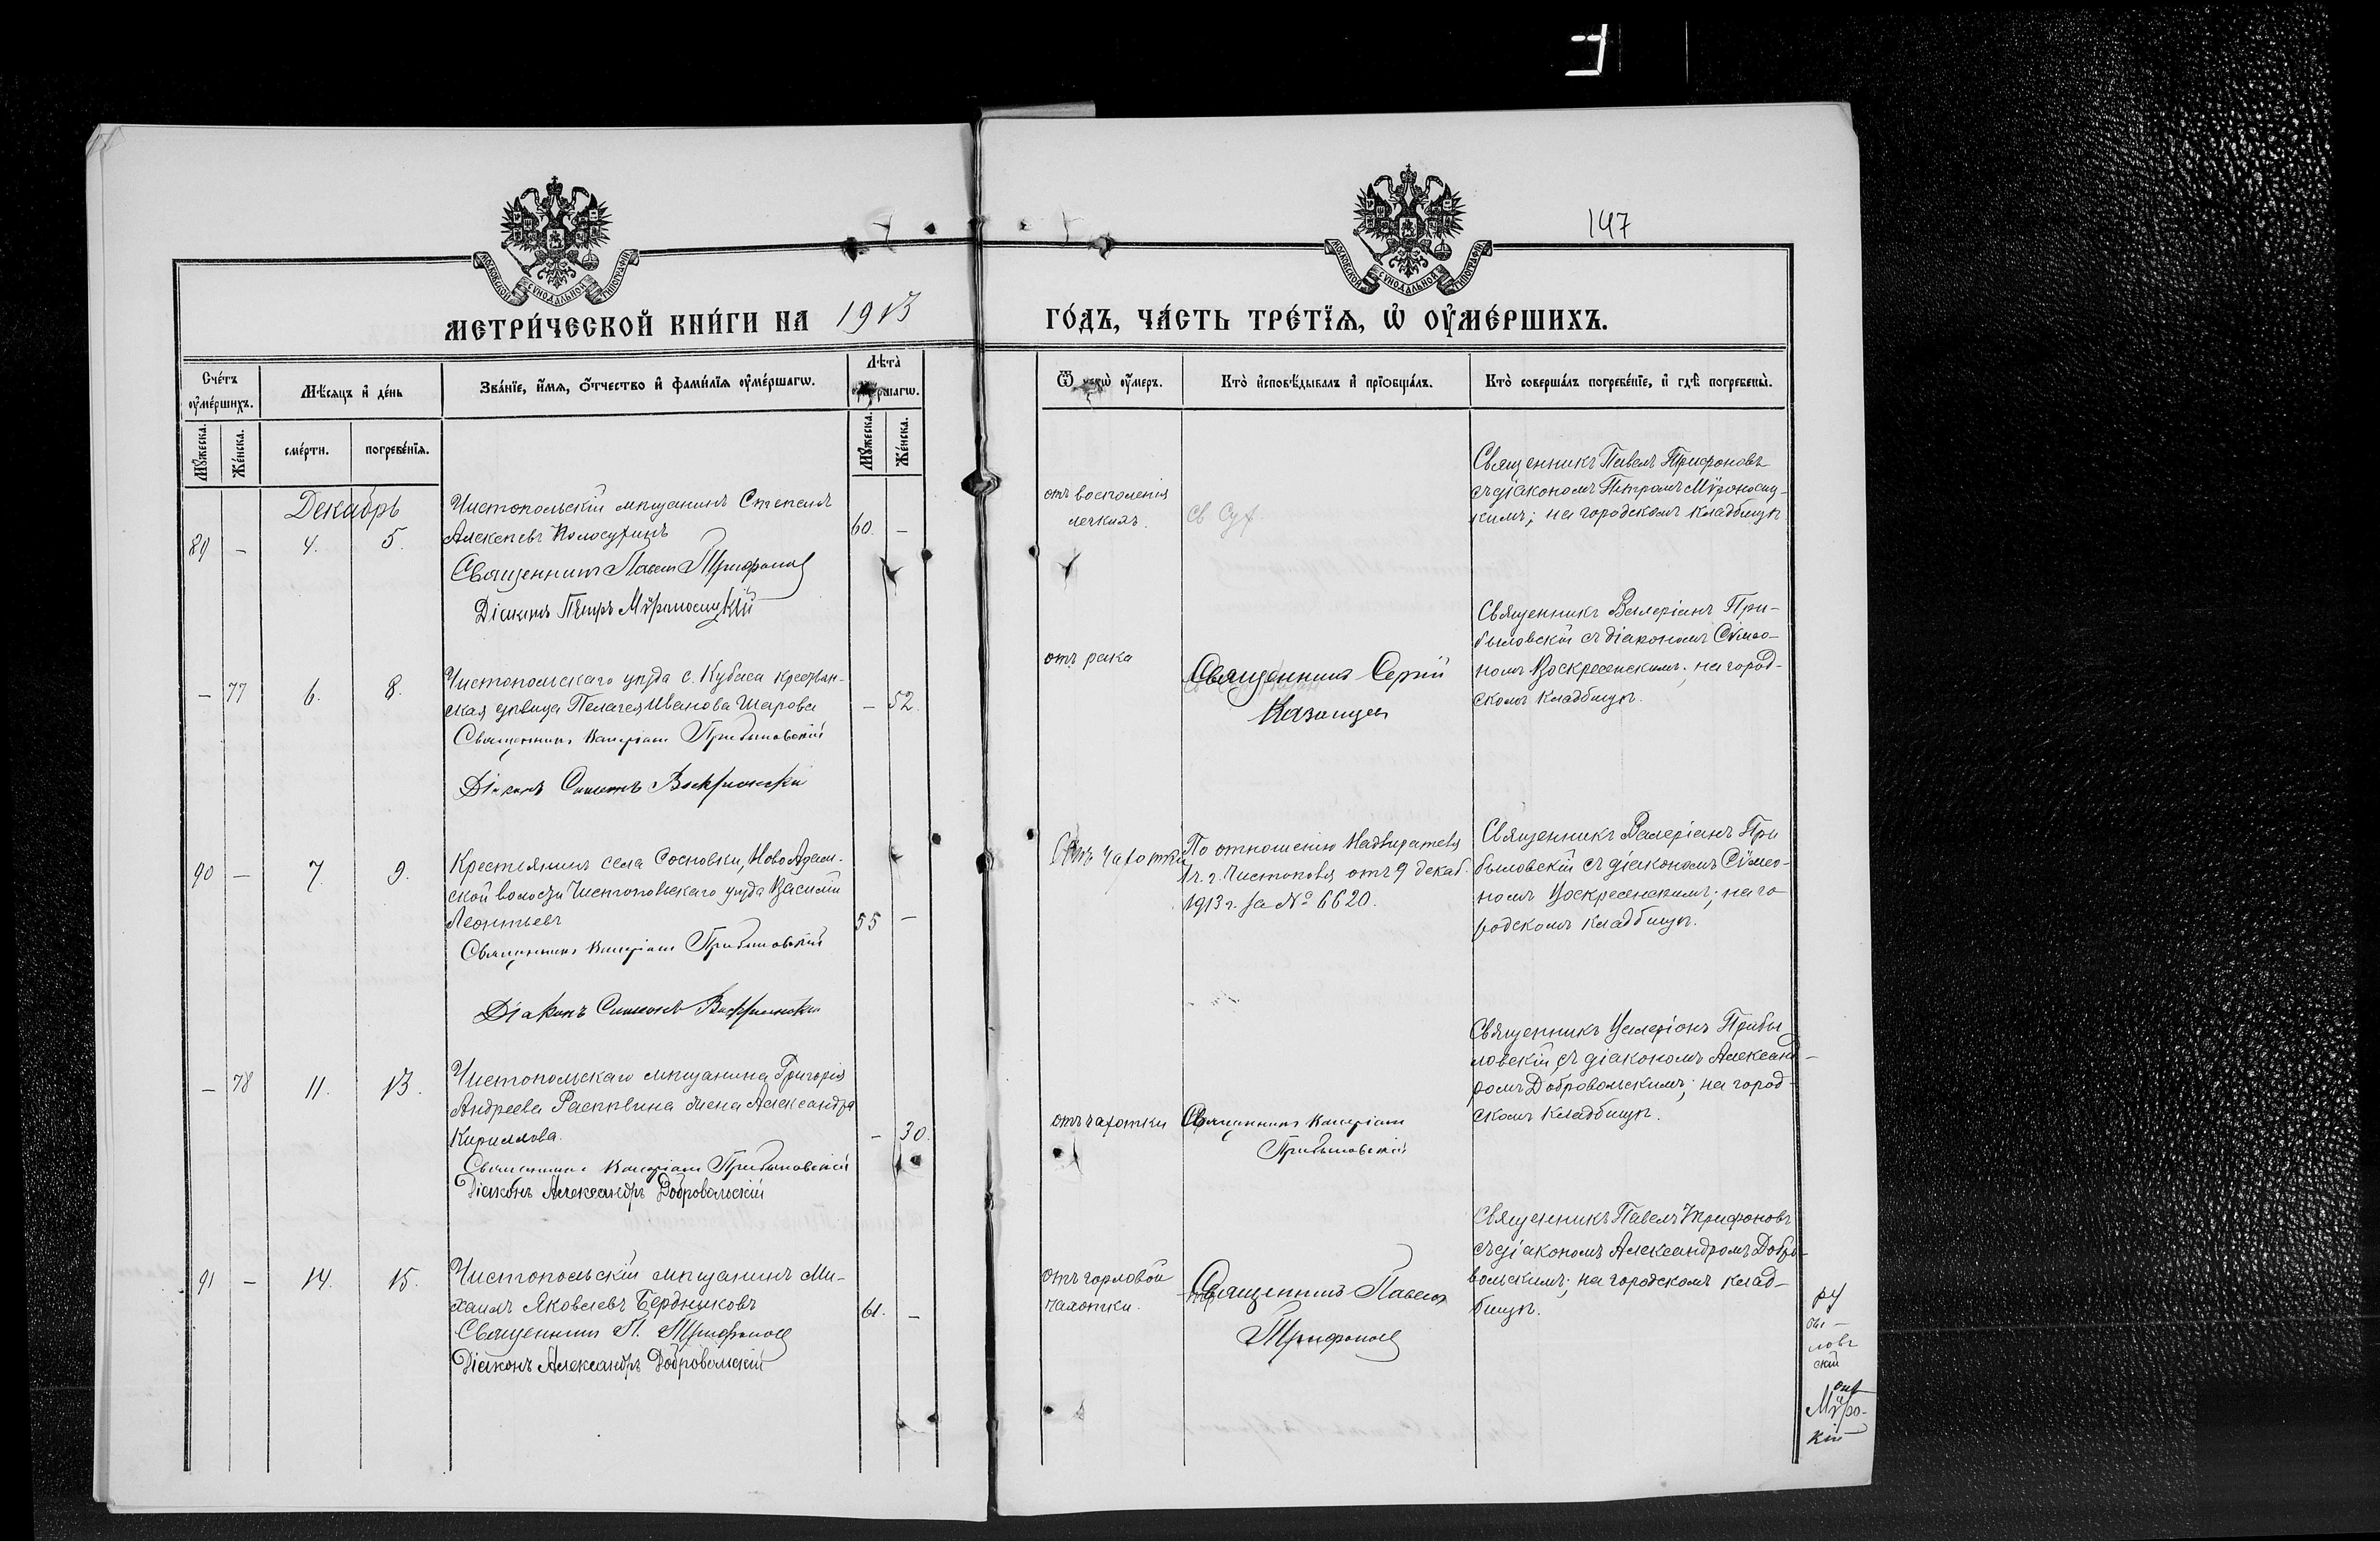 147
МОСКОВСКОЙ СѴНОДАЛЬНОЙ ТИПОГРАФІИ
МОСКОВСКОЙ СѴНОДАЛЬНОЙ ТИПОГРАФІИ
МЕТРИ́ЧЕСКОЙ КНИ́ГИ НА 1913 ГО́ДЪ, ЧА́СТЬ ТРЕ́ТЇѦ, Ѡ҆ ОУ҆МЕ́РШИХЪ.
Сче́тъ оу҆ме́ршихъ.
Мѣ́сѧцъ и҆ де́нь
Зва́нїе, и҆́мѧ, ѻ҆́тчество и҆ фами́лїѧ оу҆ме́ршагѡ.
Лѣта̀ оу҆ме́ршагѡ.
Ѿ чегѡ̀ оу҆́меръ.
Кто̀ и҆сповѣ́дывалъ и҆ прїѡбща́лъ.
Кто̀ соверша́лъ погребе́нїе, и҆ гдѣ̀ погребены̀.
Мꙋ́жеска.
Же́нска.
сме́рти.
погребе́нїѧ.
Мꙋ́жеска.
Же́нска.
Декабрь
89 – 4. 5.
Чистопольскій мѣщанинъ Степанъ
Алексѣевъ Колосухинъ
60. –
Священникъ Павелъ Трифоновъ
Діаконъ Петръ Мѵроносицкій
отъ восполенія
легкихъ.
Священникъ Павелъ Трифоновъ
съ діакономъ Петромъ Мѵроносиц-
кимъ; на городскомъ кладбищѣ
– 77 6. 8.
Чистопольскаго уѣзда с. Кубаса крестьян-
ская дѣвица Пелагея Иванова Шарова
– 52.
Священникъ Валеріанъ Прибыловскій
Діаконъ Симеонъ Воскресенскій
отъ рака
Священникъ Сергій
Казанцев
Священникъ Валеріанъ При-
быловскій съ діакономъ Сѵмео-
номъ Воскресенскимъ; на город-
скомъ кладбищѣ.
90 – 7. 9.
Крестьянинъ села Сосновки, Ново Адам-
ской волости Чистопольскаго уѣзда Василій
Леонтьевъ
55 –
Священникъ Валеріанъ Прибыловскій
Діаконъ Симеонъ Воскресенскій
Отъ чахотки
По отношенію Надзирателя
1 ч. г. Чистополя отъ 9 декаб.
1913 г. за № 6620.
Священникъ Валеріанъ При
быловскій съ діакономъ Сѵмео-
номъ Воскресенскимъ; на го
родскомъ кладбищѣ.
– 78 11. 13.
Чистопольскаго мѣщанина Григорія
Андреева жена Александра
Кириллова.
– 30.
Священникъ Валеріанъ Прибыловскій
Діаконъ Александръ Добровольскій
отъ чахотки
Священникъ Валеріанъ
Прибыловскій
Священникъ Валеріанъ Прибы
ловскій съ діакономъ Александ-
ромъ Добровольскимъ; на город-
скомъ кладбищѣ.
91 – 14. 15.
Чистопольскій мѣщанинъ Ми-
хаилъ Яковлевъ Бердниковъ
61. –
Священникъ П. Трифоновъ
Діаконъ Александръ Добровольскій
отъ горловой
чахотки.
Священникъ Павелъ
Трифоновъ
Священникъ Павелъ Трифоновъ
съ діакономъ Александромъ Добро-
вольскимъ; на городскомъ клад-
бищѣ.
ловъ
скій
Мѵро-
кій